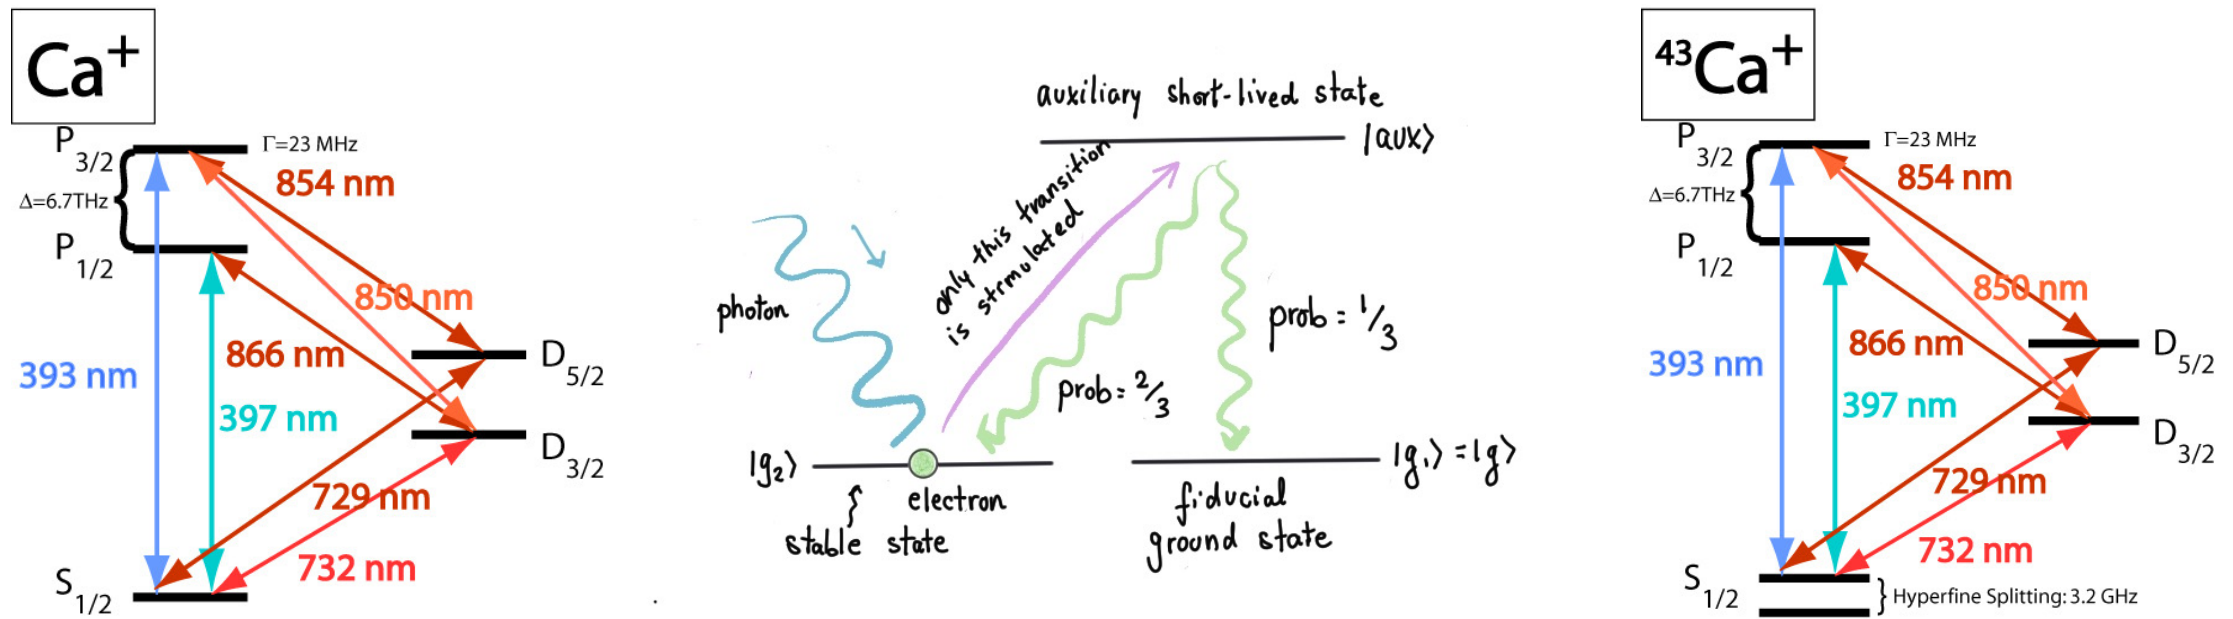 Ca+
P 3/2
Γ=23 MHz
854 nm
Δ=6.7THz
P 1/2
850 nm
866 nm
393 nm
397 nm
D 5/2
D 3/2
729 nm
732 nm
S 1/2
auxiliary short-lived state
|aux>
only this transition
is strmulated
photon
prob = 1/3
prob = 2/3
|g2>
electron
stable state
|g1> = |g>
fiducial
ground state
43Ca+
P 3/2
Γ=23 MHz
854 nm
Δ=6.7THz
P 1/2
850 nm
866 nm
393 nm
397 nm
D 5/2
D 3/2
729 nm
732 nm
S 1/2
Hyperfine Splitting: 3.2 GHz